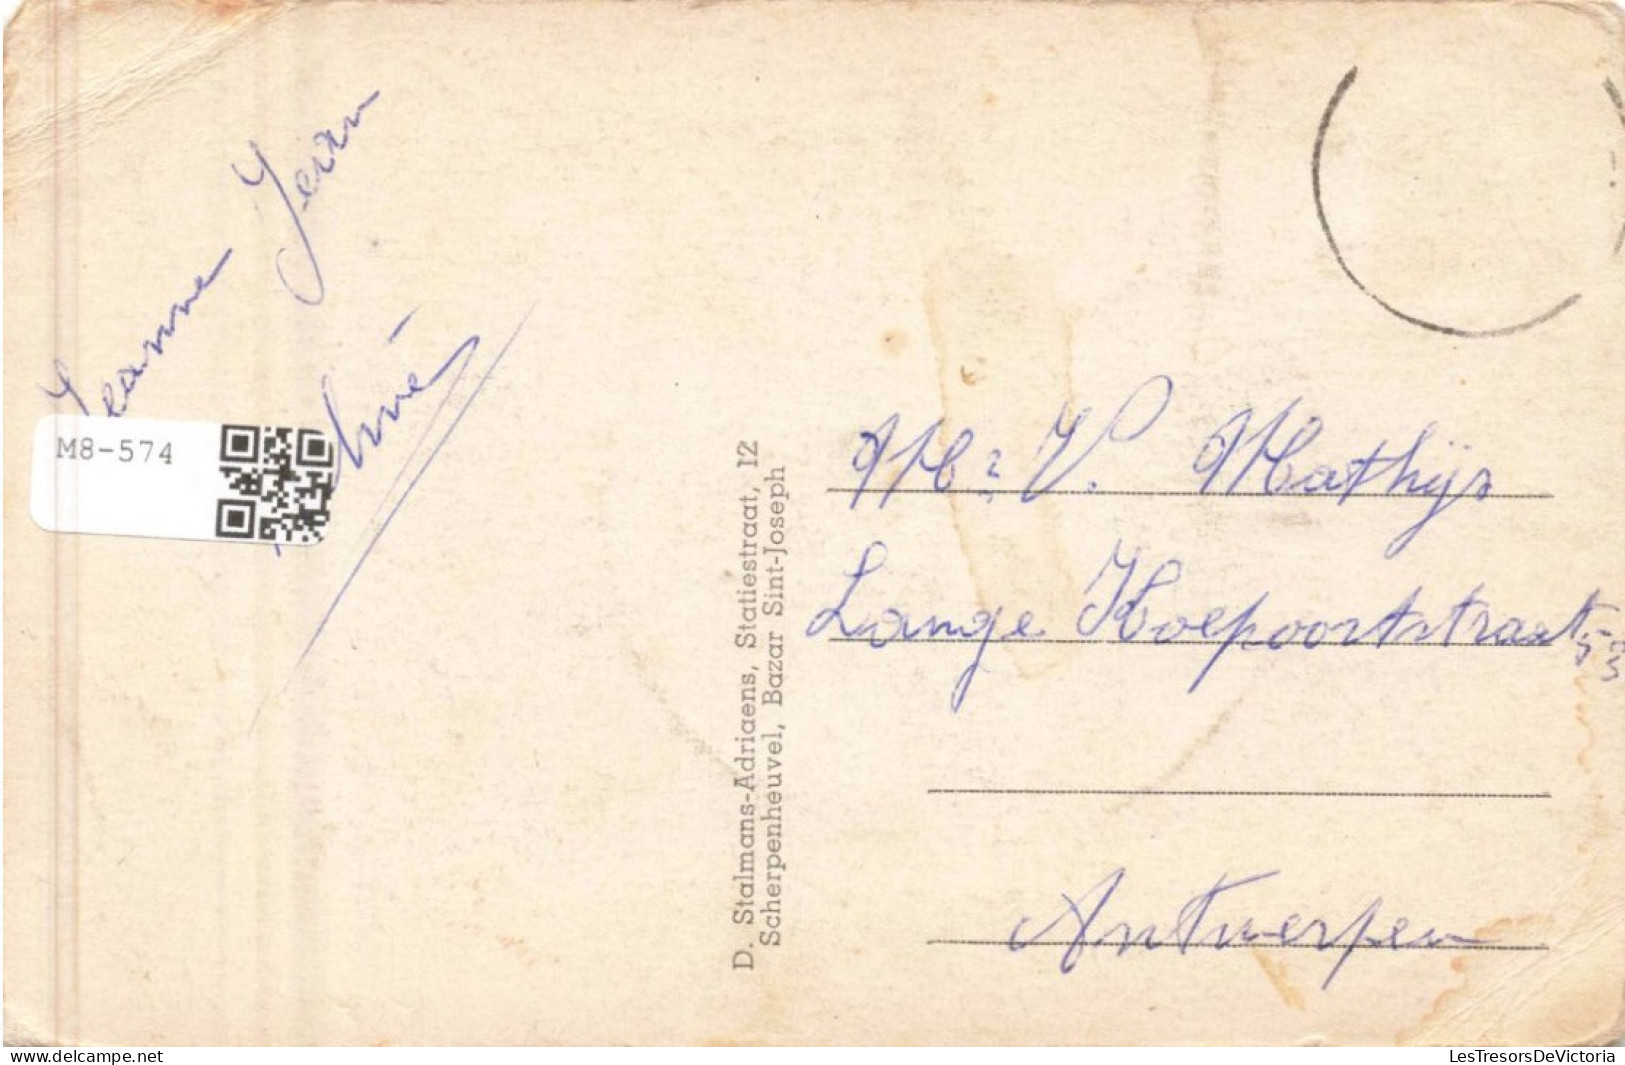 Jeanne Jean
M8-574
D. Stalmans-Adriaens, Statiestraat, 12
Scherpenheuvel, Bazar Sint-Joseph
V. Mathijs
Lange Koepoortstraat
Antwerpen
delcampe.net
LesTresorsDeVictoria